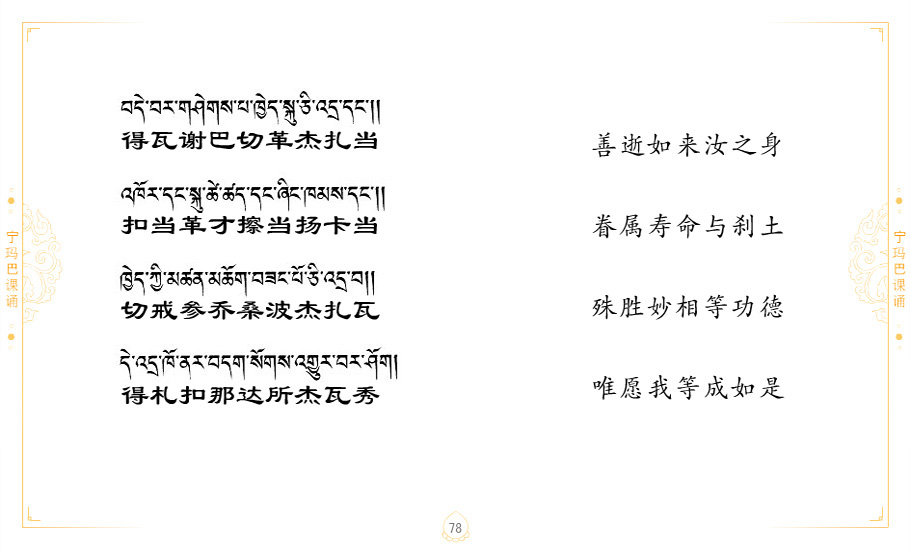 བདེ་བར་གཤེགས་པ་ཁྱེད་སྐུ་ཅི་འདྲ་དང་།།
得瓦谢巴切革杰扎当
འཁོར་དང་སྐུ་ཚེ་ཚད་དང་ཞིང་ཁམས་དང་།།
扣当革才擦当扬卡当
ཁྱེད་ཀྱི་མཚན་མཆོག་བཟང་པོ་ཅི་འདྲ་བ།།
切戒参乔桑波杰扎瓦
དེ་འདྲ་ཁོ་ནར་བདག་སོགས་འགྱུར་བར་ཤོག།
得札扣那达所杰瓦秀
善逝如来汝之身
眷属寿命与刹土
殊胜妙相等功德
唯愿我等成如是
宁玛巴课诵
宁玛巴课诵
78